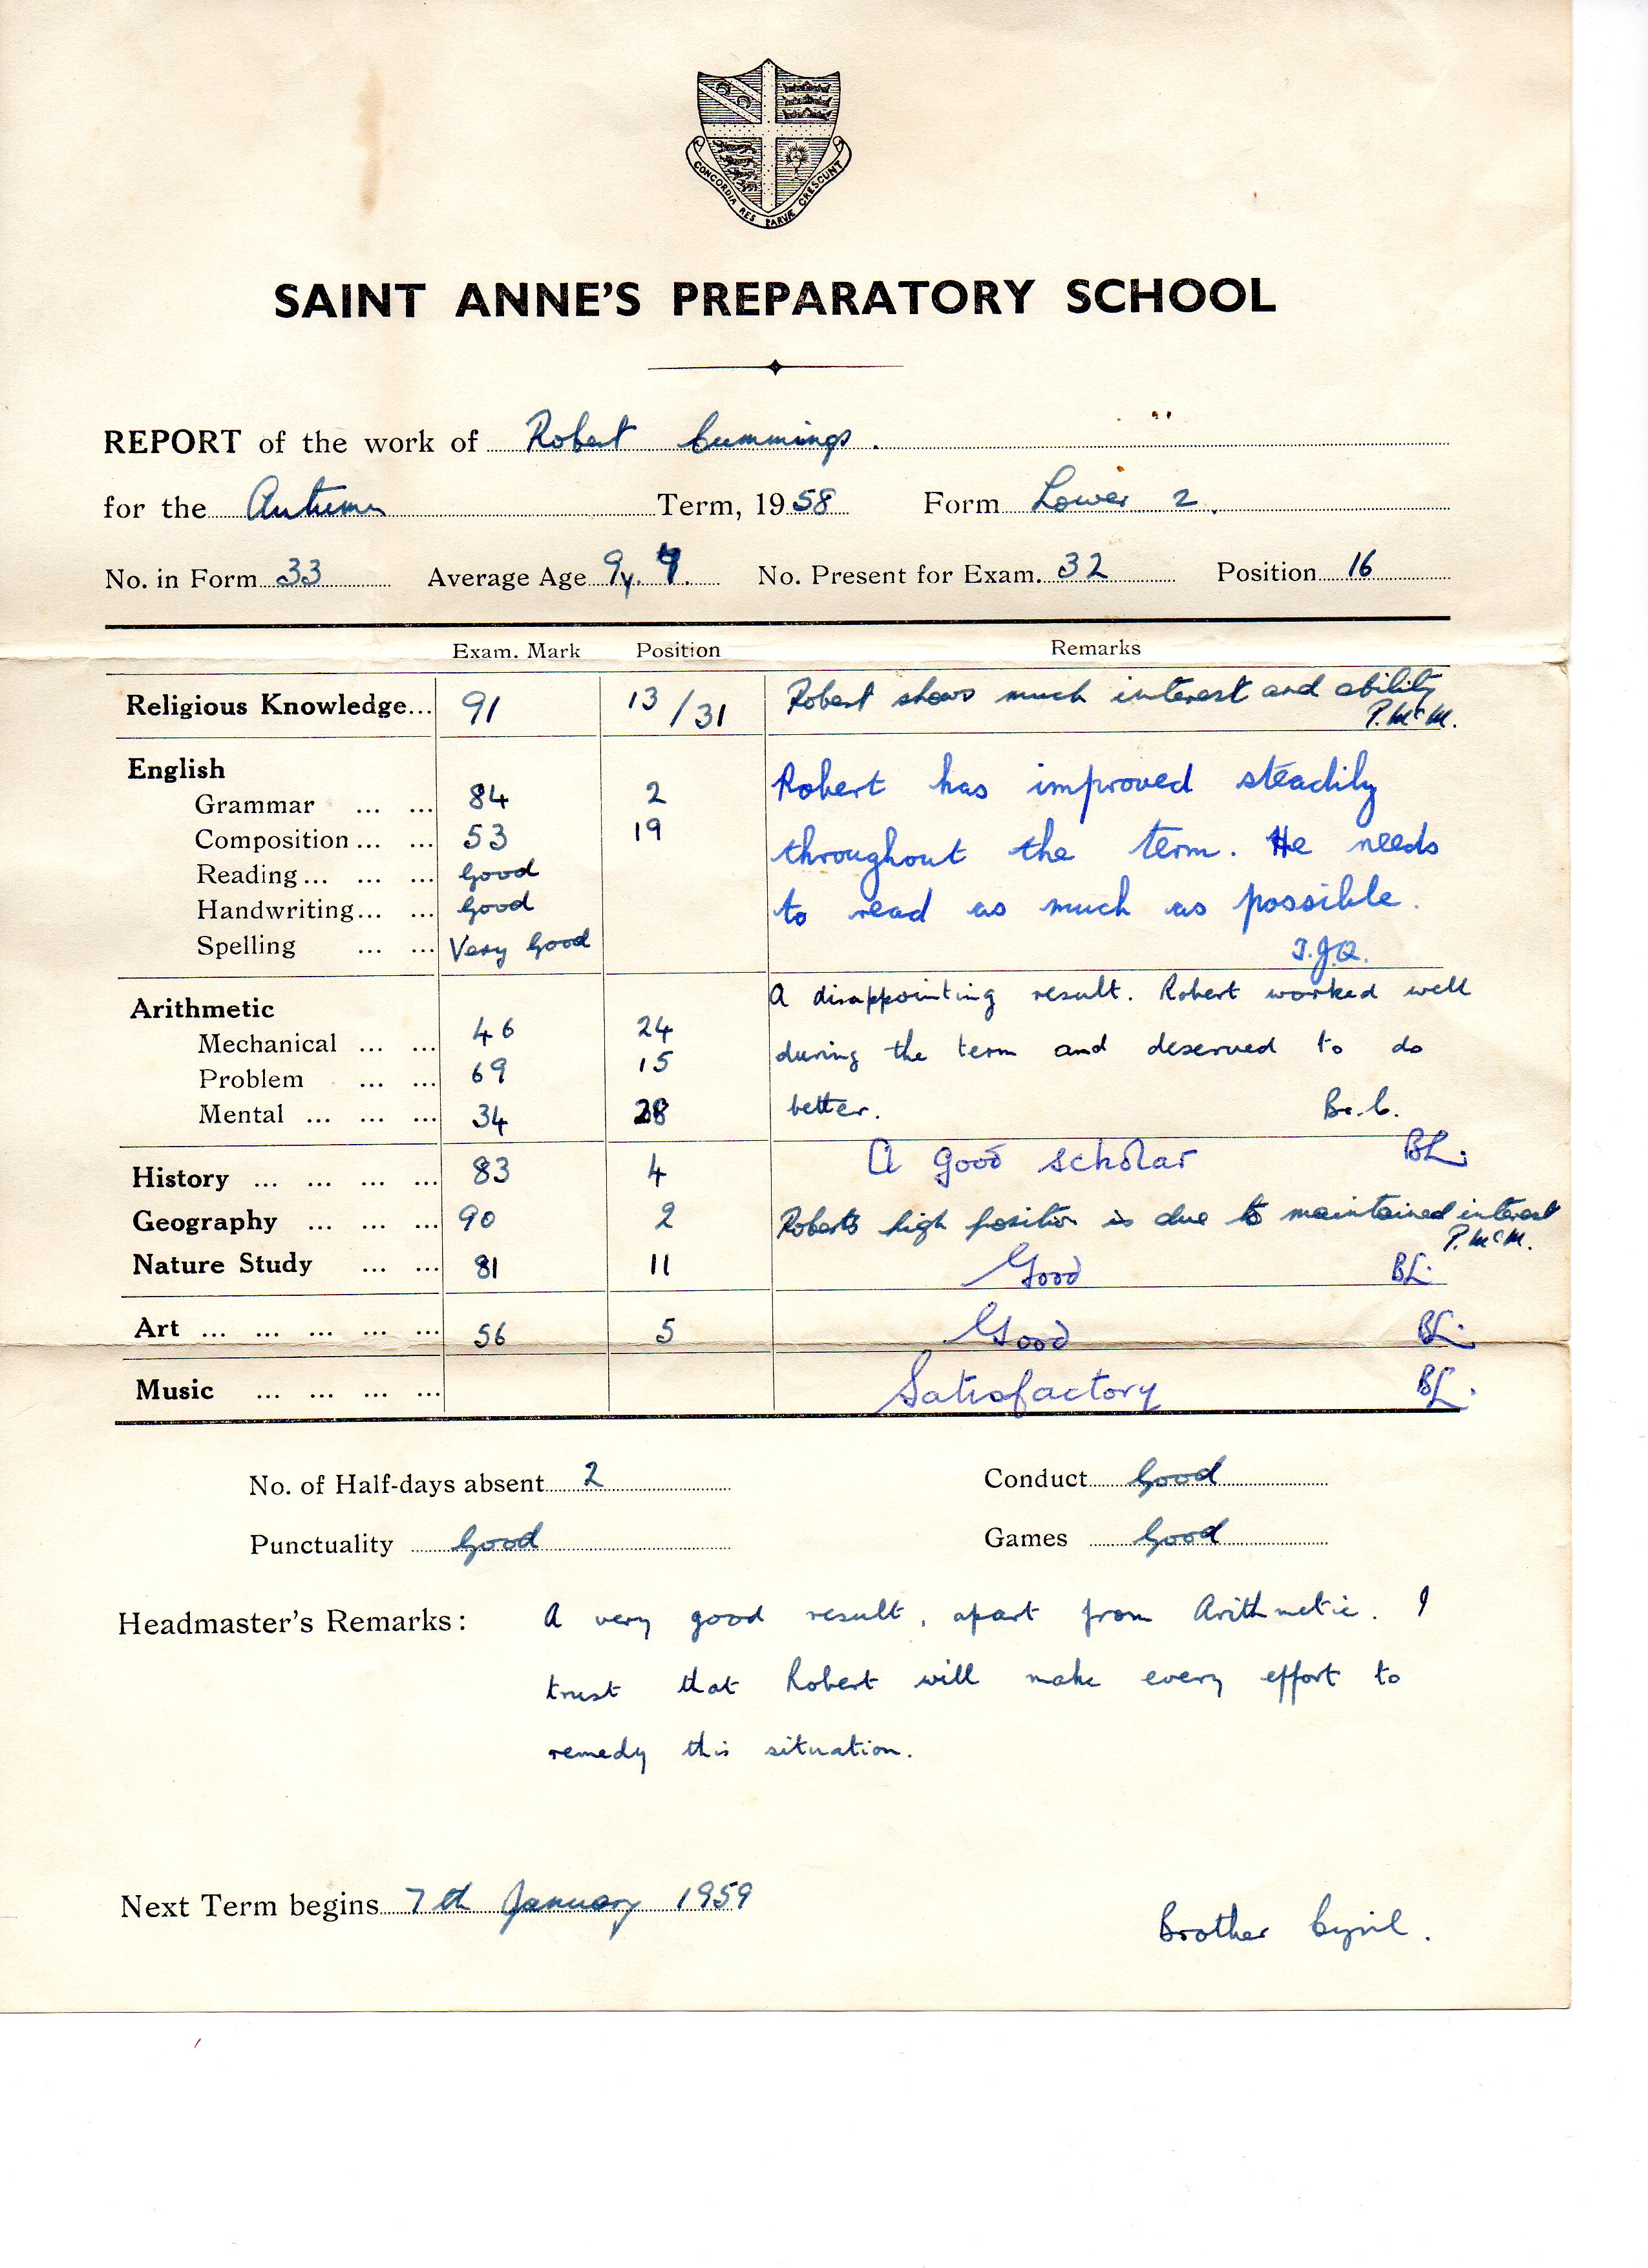 CONCORDIA RES PARVÆ CRESCUNT
SAINT ANNE'S PREPARATORY SCHOOL
REPORT of the work of Robert Cummings.
for the Autumn Term, 1958 Form Lower 2.
No. in Form 33 Average Age 9y. No. Present for Exam. 32 Position 16
Exam. Mark Position Remarks
Religious Knowledge... 91 13/31 Robert shows much interest and ability
P. McM.
English Robert has improved steadily
Grammar ... ... 84 2
Composition ... ... 53 19 throughout the term. He needs
Reading ... ... ... Good
Handwriting ... ... Good to read as much as possible.
Spelling ... ... Very Good T.J.Q.
Arithmetic A disappointing result. Robert worked well
Mechanical ... ... 46 24 during the term and deserved to do
Problem ... ... 69 15
Mental ... ... ... 34 28 better. Br. C.
History ... ... ... ... 83 4 A good scholar BL.
Geography ... ... ... 90 2 Robert's high position is due to maintained interest
P. McM.
Nature Study ... ... 81 11 Good BL.
Art ... ... ... ... ... 56 5 Good BL.
Music ... ... ... ... Satisfactory BL.
No. of Half-days absent 2 Conduct Good
Punctuality Good Games Good
Headmaster's Remarks: A very good result, apart from Arithmetic. I
trust that Robert will make every effort to
remedy this situation.
Next Term begins 7th January 1959
Brother Cyril.